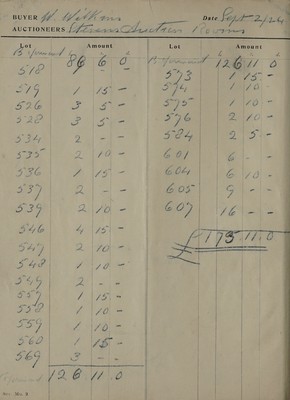 BUYER W. Williams Date Sept 2/24
AUCTIONEERS Stevens Auction Rooms
Lot Amount
B. forward 86 6 0
518 9 - -
519 1 15 -
526 3 5 -
528 3 5 -
534 2 - -
535 2 10 -
536 1 15 -
537 2 - -
539 2 10 -
546 4 15 -
547 2 10 -
548 1 10 -
549 2 - -
557 1 15 -
558 1 10 -
559 1 10 -
560 1 15 -
569 3 - -
forward 126 11 0
Lot Amount
B. forward 126 11 0
573 1 15 -
574 1 10 -
575 1 10 -
576 2 10 -
584 2 5 -
601 6 - -
604 6 10 -
605 9 - -
607 16 - -
£ 173.11.0